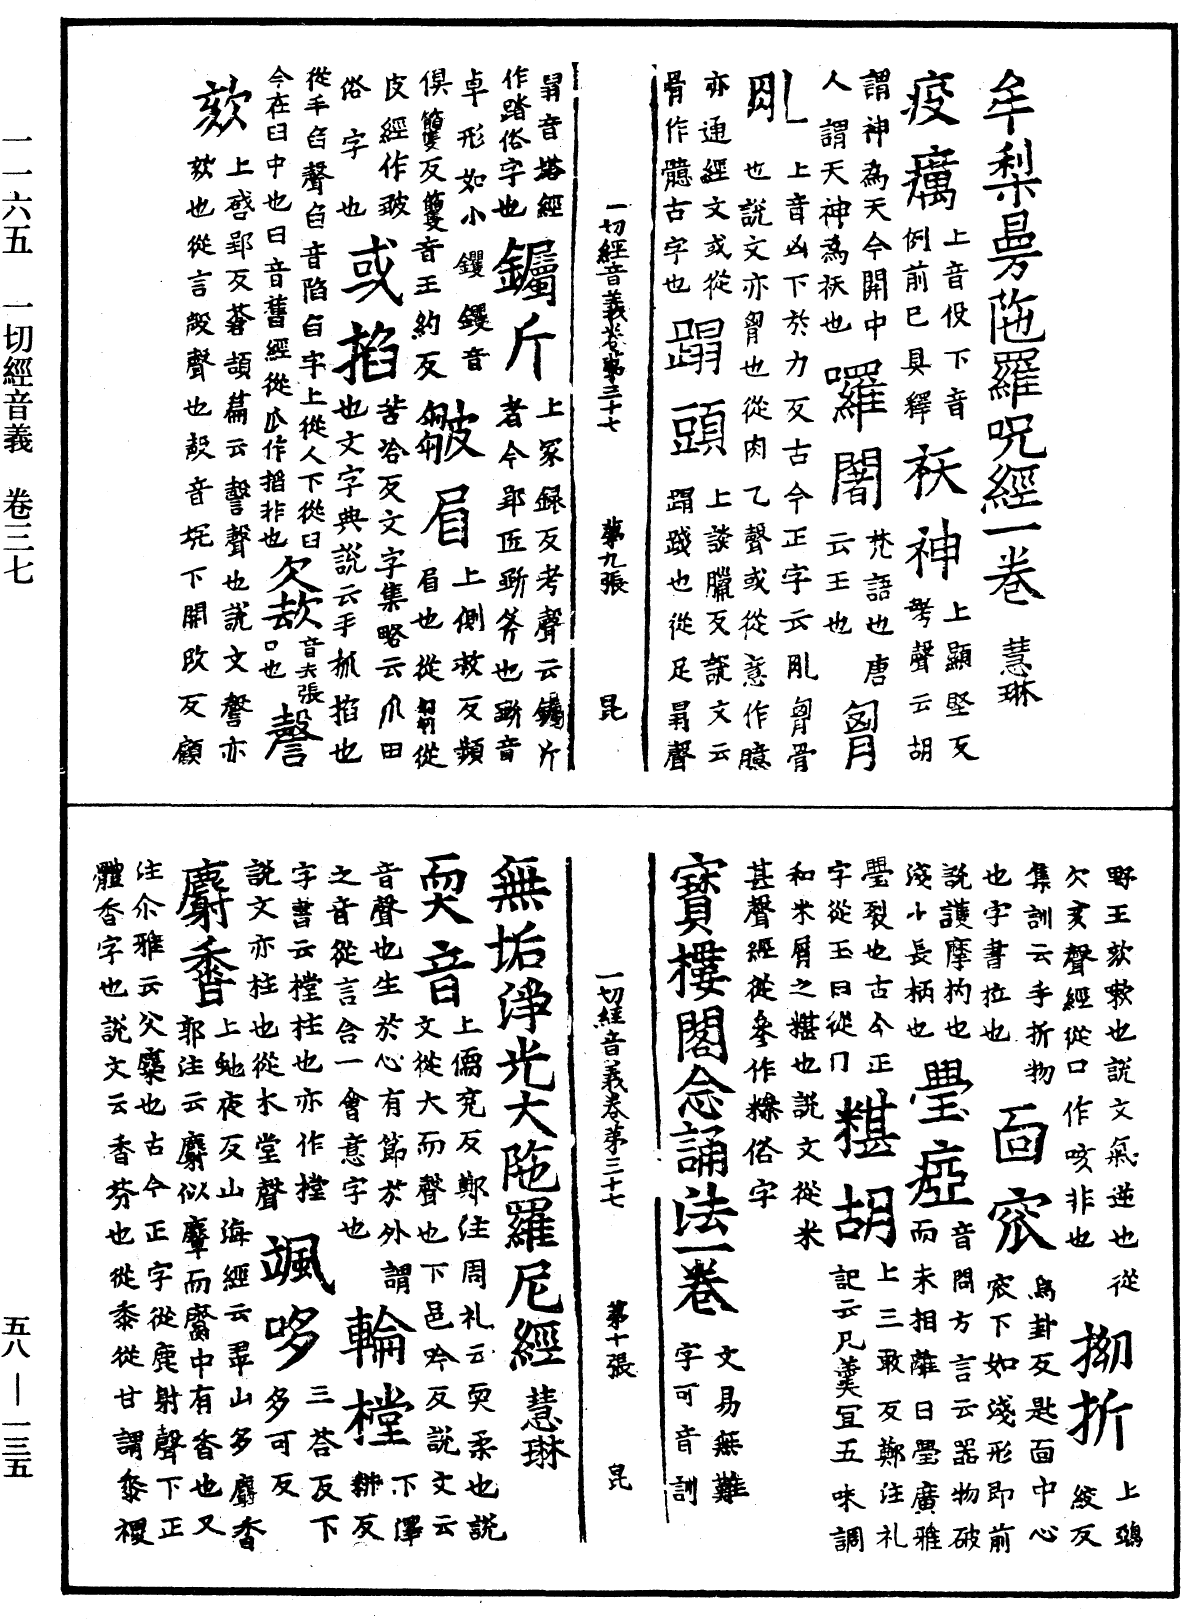 牟梨曼陁羅呪經一卷 慧琳
疫癘 上音役下音例前已具釋
祆神 上顯堅反考聲云胡謂神為天今開中人謂天神為祆也
囉闍 梵語也唐云王也
匈肊 上音凶下於力反古今正字云肊匈骨也說文亦匈也從肉乙聲或從意作臆亦通經文或從骨作髓古字也
蹋頭 上談臘反說文云蹋踐也從足𦐇聲
一切經音義卷第三十七 第九張 昆
𦐇音塔經作踏俗字也
钃斤 上冢録反考聲云钃斤者今鄓匠斲斧也斲音卓形如小钁钁音俱籰反籰音王約反
皺眉 上側救反頻眉也從皮經作皱俗字也
或掐 苦洽反文字集略云爪田也文字典說云手抓掐也從手臽聲臽音陷臽字上從人下從臼今在臼中也臼音舊經從爪作搯非也
欠㰦 音去張口也
謦欬 上啓郢反蒼頡篇云謦聲也說文謦亦欬也從言殸聲也殸音坑下開改反顧
野王欬嗽也說文氣逆也從欠亥聲經從口作咳非也
拗折 上鵶絞反集訓云手折物也字書拉也
㔽㝝 烏卦反匙面中心㝝下如淺形即前說護摩杓也淺小長柄也
璺瘂 音問方言云器物破而未相離曰璺廣雅璺裂也古今正字從玉曰從门
糂胡 上三敢反鄭注礼記云凡羹冝五味調和米屑之糂也說文從米甚聲經從參作糝俗字
寶樓閣念誦法一卷 文易無難字可音訓
一切經音義卷第三十七 第十張 昆
無垢淨光大陁羅尼經 慧琳
耎音 上儒兖反鄭注周礼云耎柔也說文從大而聲也下邑吟反說文云音聲也生於心有節於外謂之音從言含一會意字也
輪樘 下澤耕反字書云樘柱也亦作撑說文亦柱也從木堂聲
颯哆 三荅反下多可反
麝香 上虵夜反山海經云翠山多麝香郭注云麝似麞而臍中有香也又注尒雅云父麋也古今正字從鹿射聲下正體香字也說文云香芬也從黍從甘謂黍稷
一一六五 一切經音義 卷三七
五八—一三五